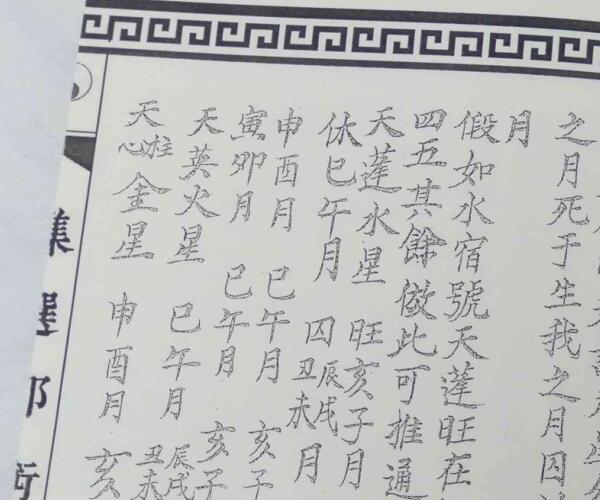 之月死于生我之月囚
月
假如水宿號天蓬旺在
四五其餘做此可推通
天蓬水星　旺亥子月
休巳午月　囚辰戌丑未月
申酉月　巳午月　亥子
寅卯月　巳午月　亥子
天英火星　巳午月　辰戌丑未
天柱心金星　申酉月　亥